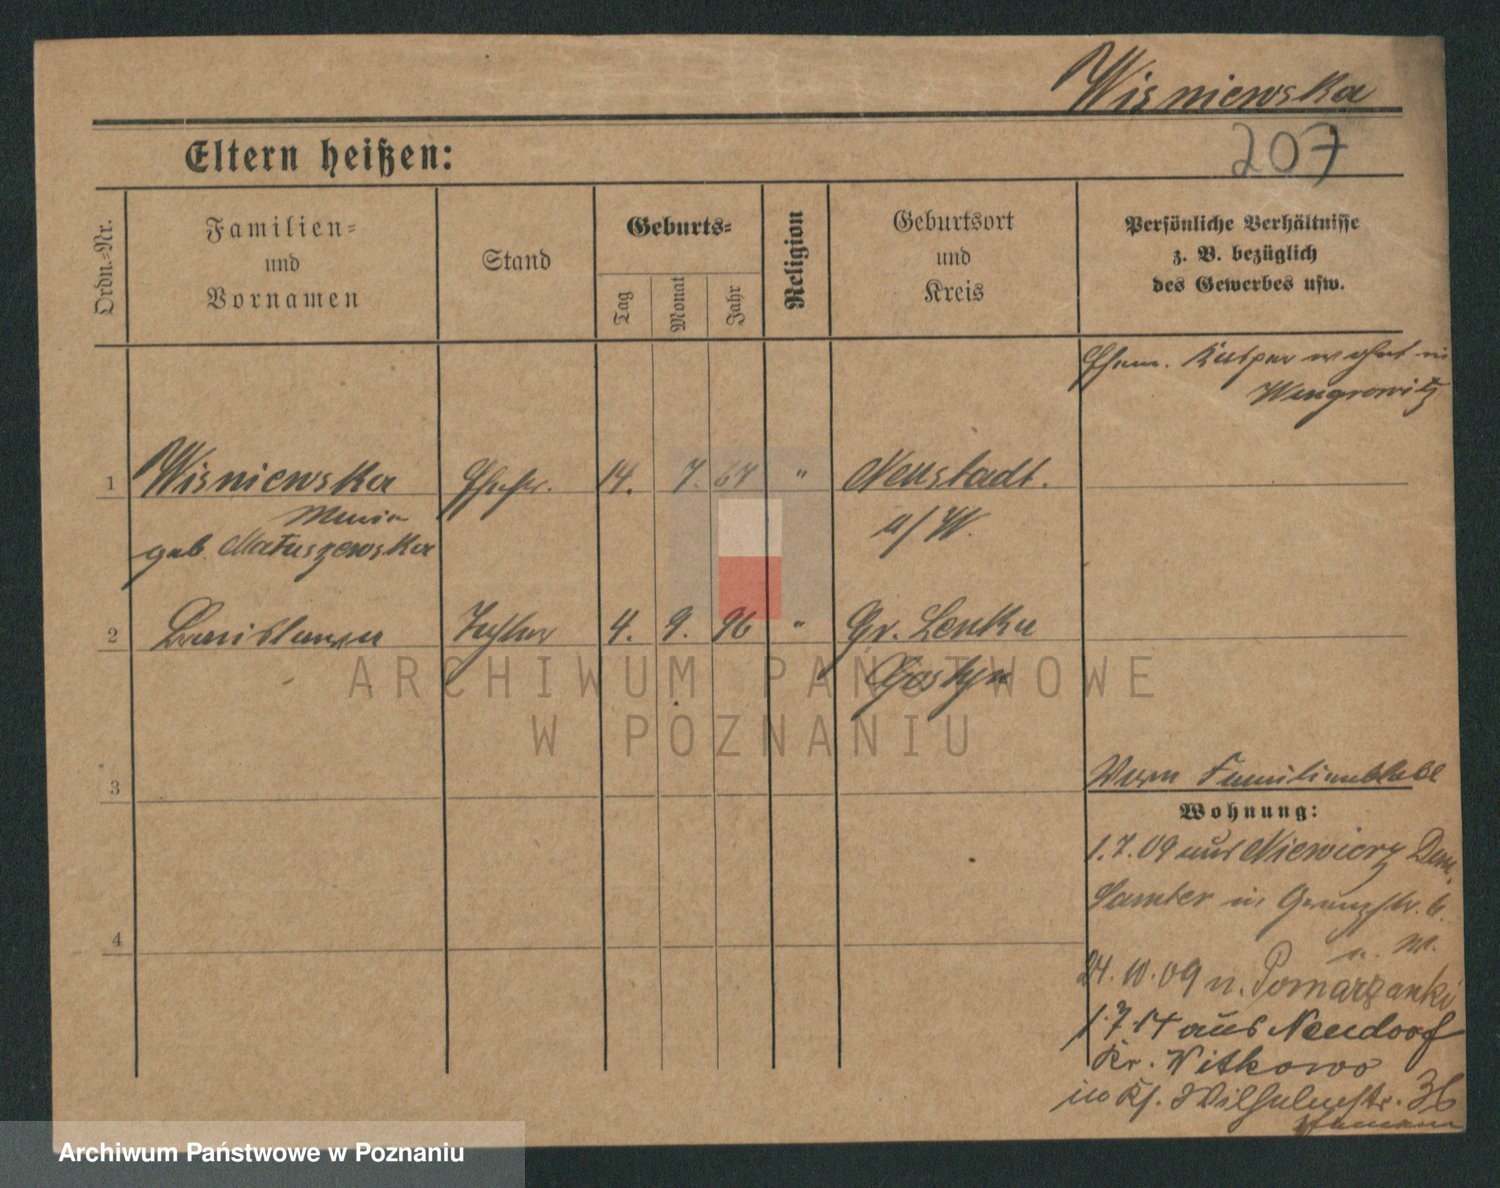 Wisniewska
207
Eltern heißen:
Ordn.-Nr.
Familien-
und
Vornamen
Stand
Geburts-
Tag
Monat
Jahr
Religion
Geburtsort
und
Kreis
Persönliche Verhältnisse
z. B. bezüglich
des Gewerbes usw.
Ehem. Kaspar wohnt in
Wongrowitz
1 Wisniewska Ehefr. 14. 7. 67 " Neustadt.
Maria a/W.
geb. Matuszewska
2 Tochter 4. 9. 96 " Gr. Lenka
Gostyn
ARCHIWUM PAŃSTWOWE
W POZNANIU
3
Familienblatt
Wohnung:
1.7.09 aus Niewierz
Samter in
24.10.09 n. Pomarzanki
1.7.14 aus Neudorf
Kr. Witkowo
in Wilhelmstr. 36
4
Archiwum Państwowe w Poznaniu